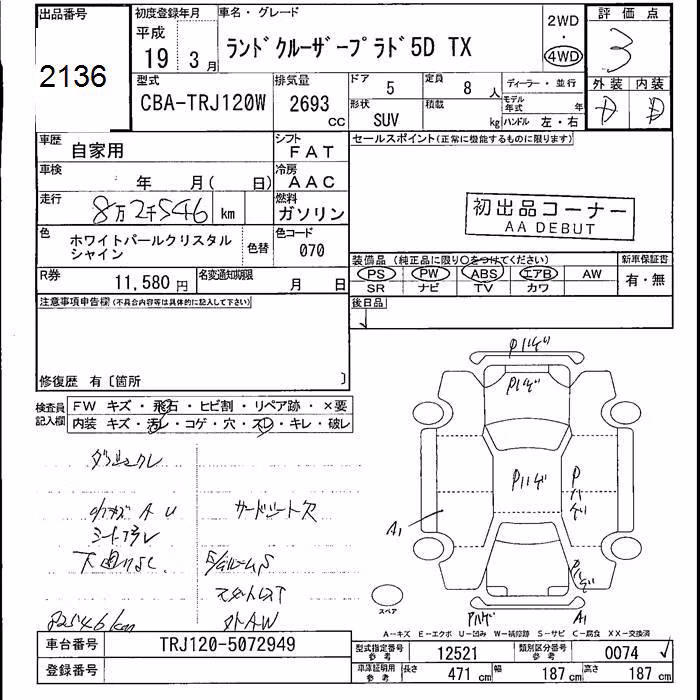 出品番号
2136
初度登録年月
平成
19 3 月
車名・グレード
ランドクルーザープラド5D TX
2WD
・
4WD
評価点
3
外装 内装
D D
型式
CBA-TRJ120W
排気量
2693
CC
ドア 5
形状
SUV
定員 8 人
積載 kg
ディーラー・並行
モデル年式 年
ハンドル 左・右
車歴
自家用
シフト
FAT
セールスポイント(正常に機能するものに限ります)
車検
年 月( 日)
冷房
AAC
走行
8万2千546 km
燃料
ガソリン
初出品コーナー
AA DEBUT
色
ホワイトパールクリスタル
シャイン
色替
色コード
070
装備品 (純正品に限り○をつけてください)
新車保証書
PS PW ABS エアB AW
有・無
SR ナビ TV カワ
R券
11,580 円
名変通知期限
月 日
後日品
注意事項申告欄(不具合内容等は具体的に記入して下さい)
修復歴 有〔箇所 〕
検査員
記入欄
FW キズ・飛石・ヒビ割・リペア跡・×要
内装 キズ・汚レ・コゲ・穴・スレ・キレ・破レ
Pハゲ
Pハゲ
Pハゲ
Pハゲ
A1
Pハゲ
A1
スペア
シートスレ
外AW
82546km
A-キズ E-エクボ U-凹み W-補修跡 S-サビ C-腐食 XX-交換済
車台番号
TRJ120-5072949
型式指定番号
参考
12521
類別区分番号
参考
0074
登録番号
車庫証明用
参考
長さ 471 cm
幅 187 cm
高さ 187 cm